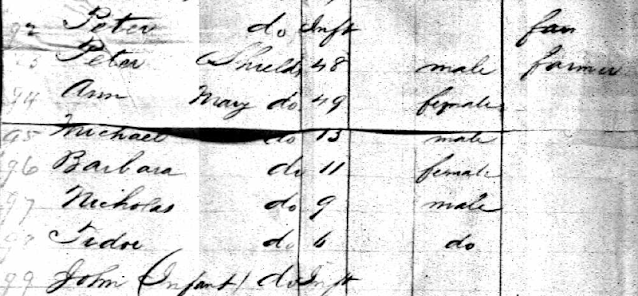 92 Peter do Inft
Peter Shields 48 male farmer
94 Ann May do 49 female
95 Michael do 13 male
96 Barbara do 11 female
97 Nicholas do 9 male
Fidor do 6 do
99 John (Infant) do Inft